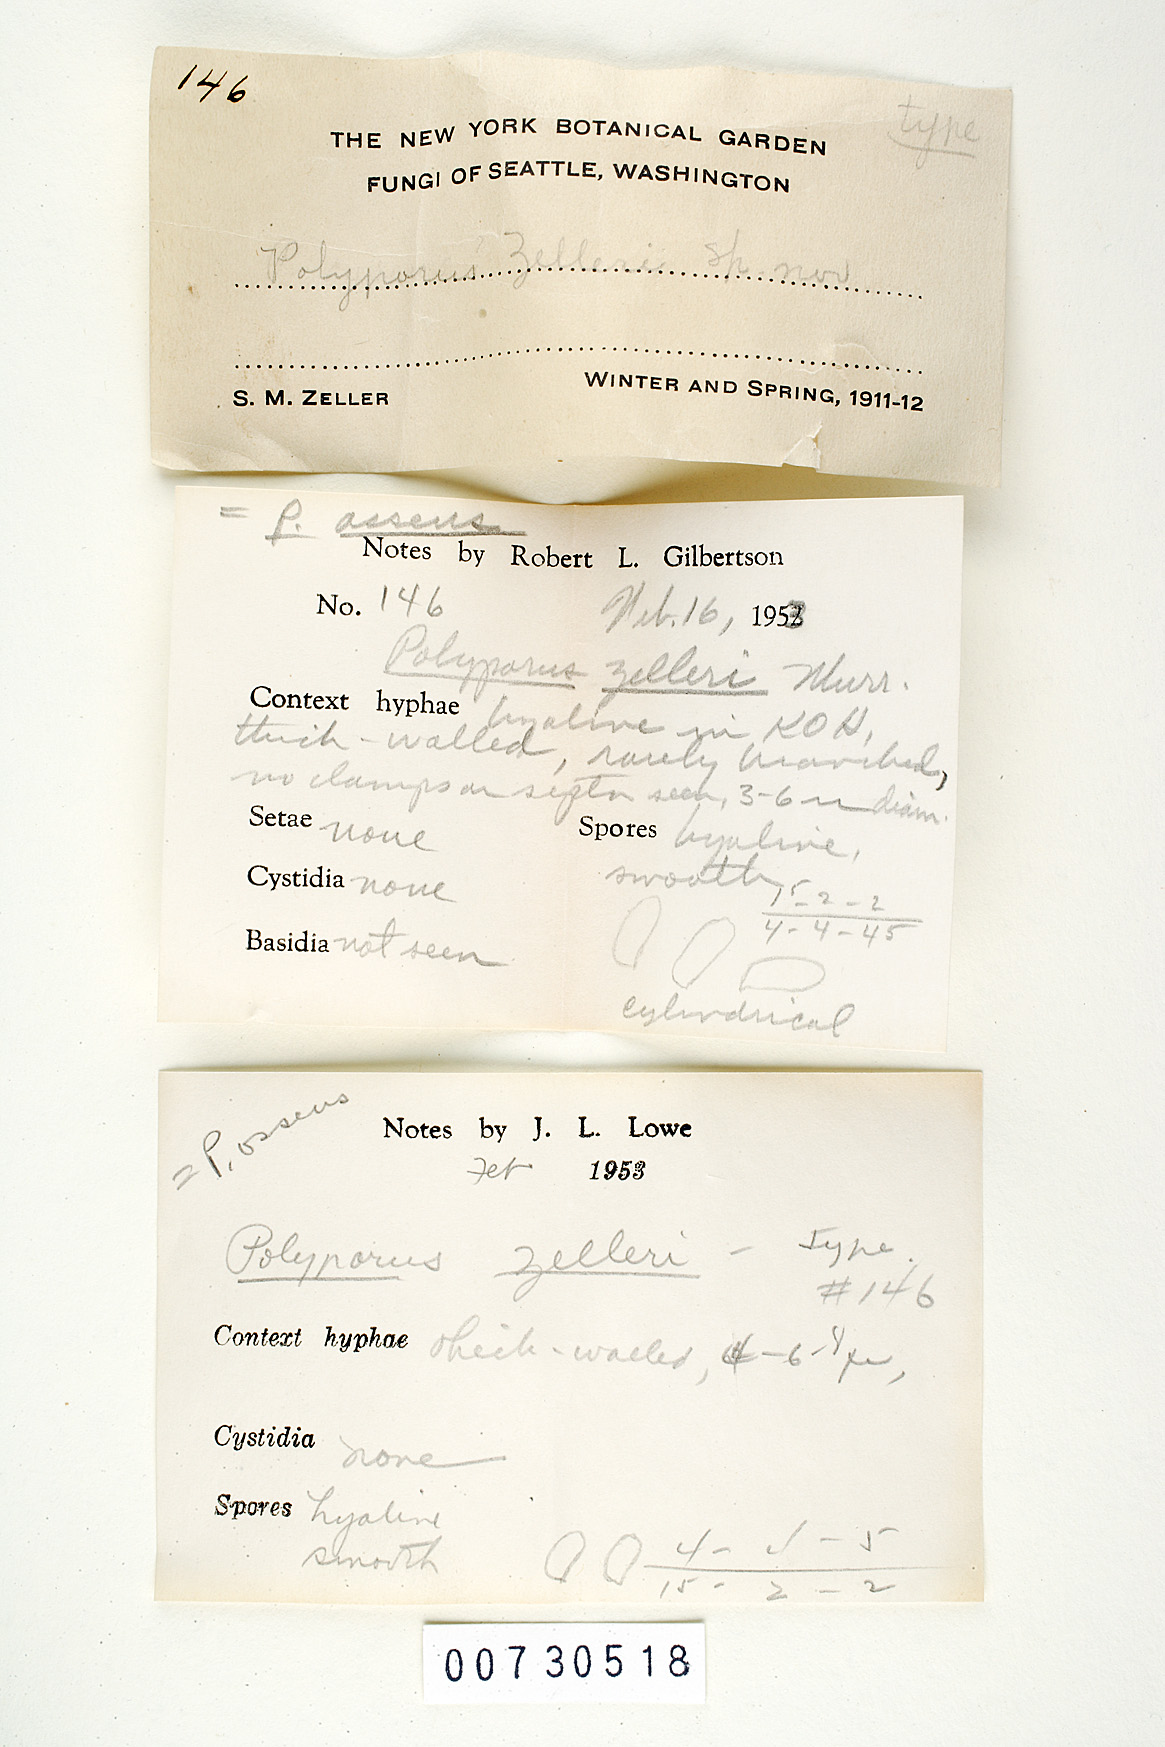 146
type
THE NEW YORK BOTANICAL GARDEN
FUNGI OF SEATTLE, WASHINGTON
Polyporus Zelleri sp. nov
S. M. ZELLER
WINTER AND SPRING, 1911-12
= P. osseus
Notes by Robert L. Gilbertson
No. 146 Feb. 16, 1953
Polyporus zelleri Murr.
Context hyphae hyaline in KOH,
thick-walled, rarely branched,
no clamps or septa seen, 3-6 µ diam.
Setae none
Spores hyaline,
smooth,
Cystidia none
15-2-2
4-4-45
Basidia not seen
cylindrical
= P. osseus
Notes by J. L. Lowe
Feb 1953
Polyporus zelleri - Type.
#146
Context hyphae thick-walled, 4-6-8µ,
Cystidia none
Spores hyaline
smooth
4- - 5
15- 2 - 2
00730518